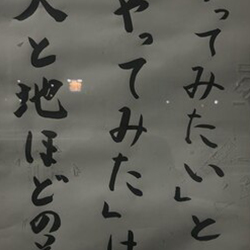 ってみたい」と
やってみた」は
天と地ほどの差